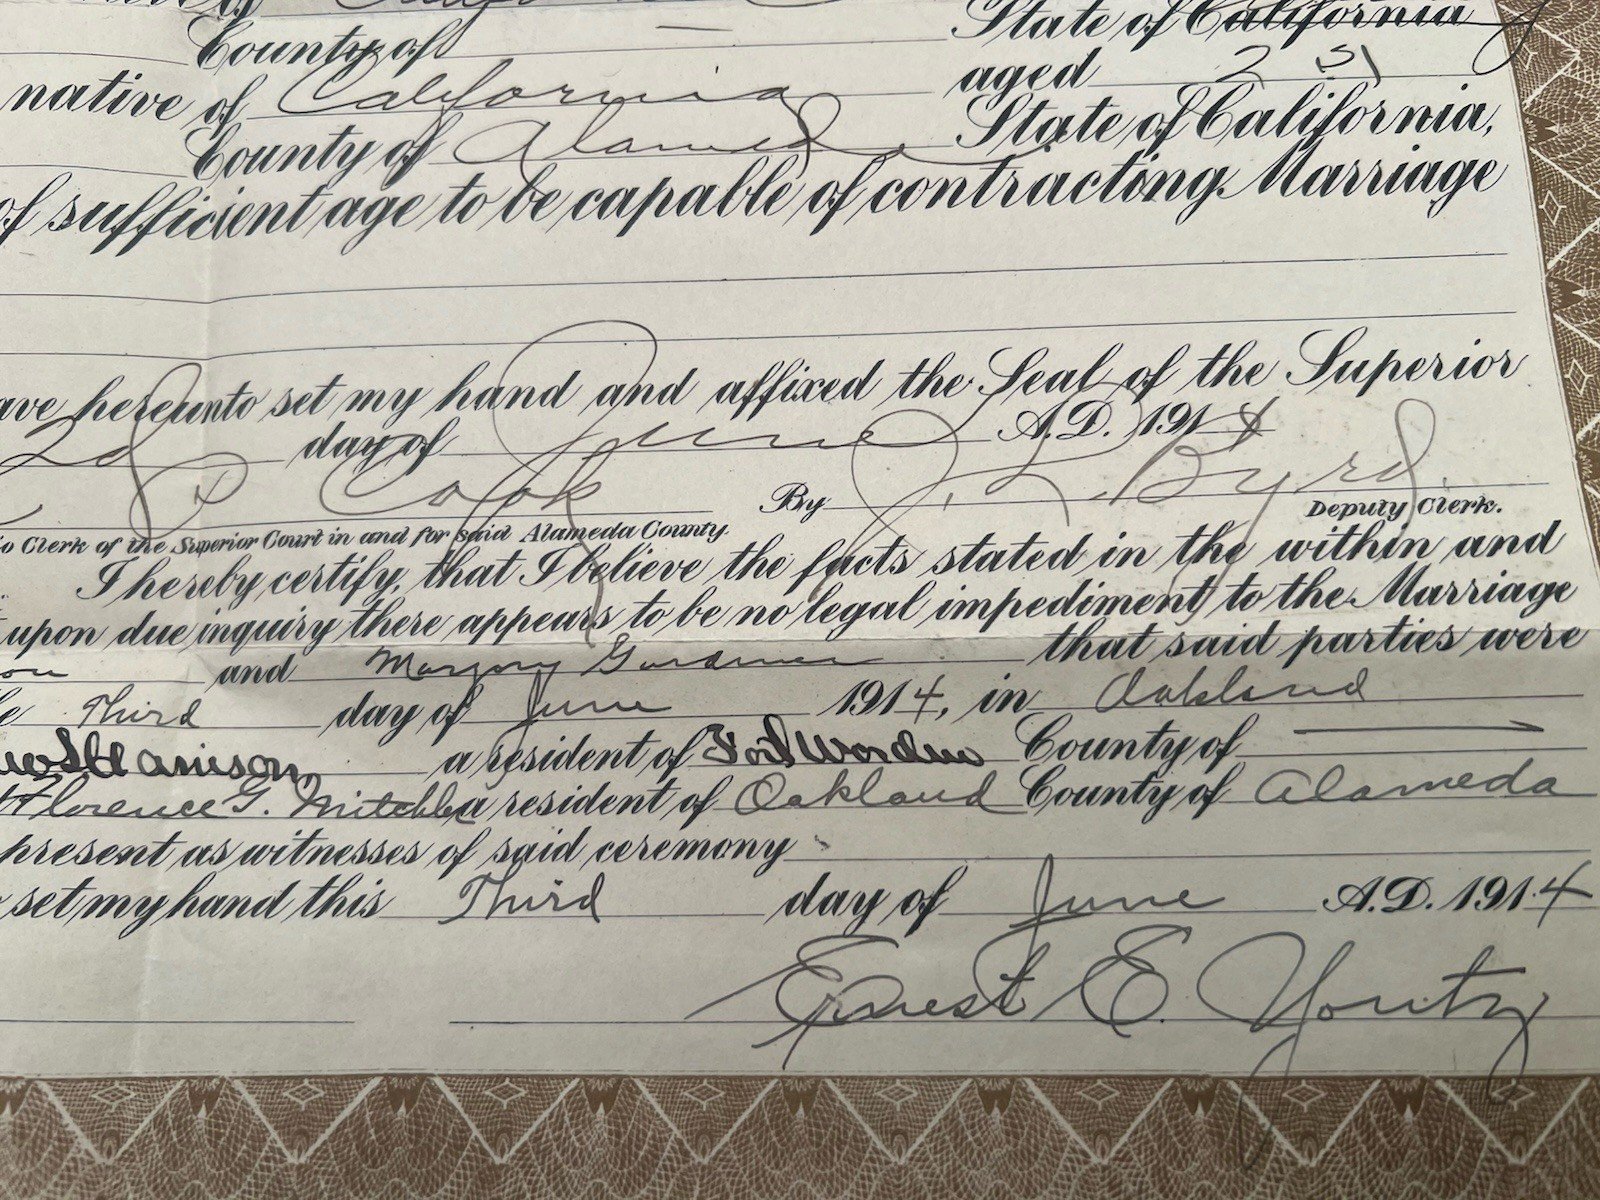 County of — State of California
native of California aged 21
County of Alameda State of California,
of sufficient age to be capable of contracting Marriage
hereunto set my hand and affixed the Seal of the Superior
2d day of June A.D. 1914
Cook By J. L. Byrd
Clerk of the Superior Court in and for said Alameda County. Deputy Clerk.
I hereby certify, that I believe the facts stated in the within and
upon due inquiry there appears to be no legal impediment to the Marriage
and Marjory Gardiner that said parties were
Third day of June 1914, in Oakland
Harrison a resident of Fort Worden County of —
Florence G. Mitchell a resident of Oakland County of Alameda
present as witnesses of said ceremony
set my hand this Third day of June A.D. 1914
Ernest E. Youtz